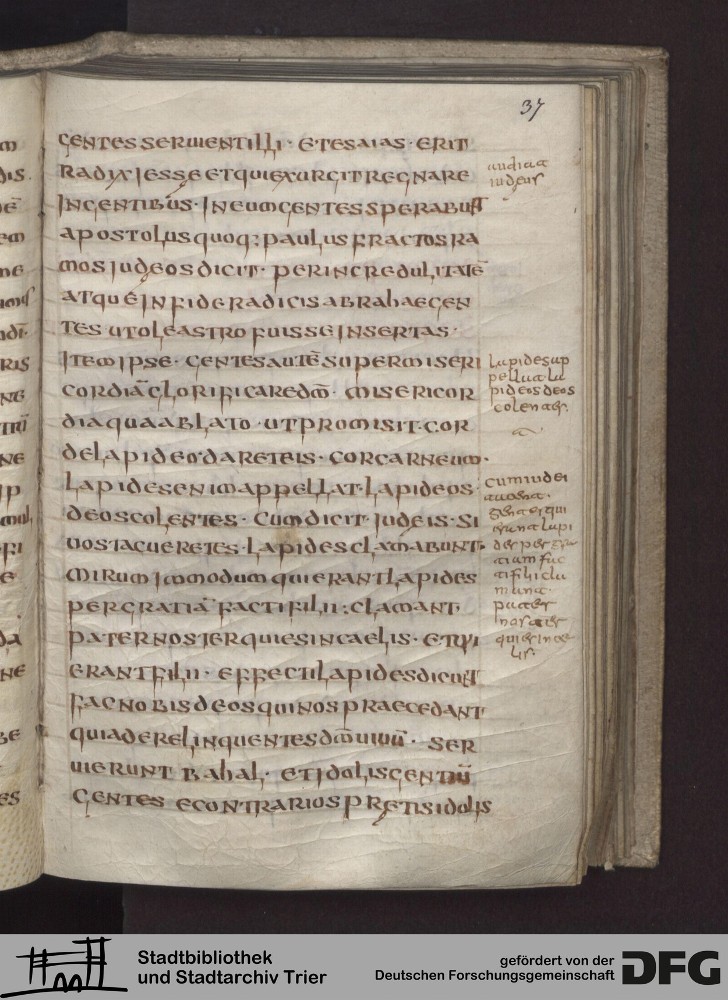 37
GENTES SERUIENT ILLI · ET ESAIAS · ERIT
RADIX IESSE ET QUI EXURGIT REGNARE
IN GENTIBUS · IN EUM GENTES SPERABUNT
APOSTOLUS QUOQ: PAULUS FRACTOS RA
MOS IUDEOS DICIT · PER INCREDULITATĒ
ATQUE IN FIDE RADICIS ABRAHAE GEN
TES UT OLEASTRO FUISSE INSERTAS ·
ITEM IPSE · GENTES AUTĒ SUPER MISERI
CORDIĀ GLORIFICARE DM̄ · MISERICOR
DIA QUA ABLATO · UT PROMISIT · COR
DE LAPIDEO DARET EIS · COR CARNEUM ·
LAPIDES ENIM APPELLAT · LAPIDEOS
DEOS COLENTES · CUM DICIT IUDEIS · SI
UOS TACUERETES · LAPIDES CLAMABUNT ·
MIRUM IN MODUM QUI ERANT LAPIDES
PER GRATIĀ FACTI FILII : CLAMANT
PATER NOSTER QUI ES IN CAELIS · ET QUI
ERANT FILII · EFFECTI LAPIDES DICUNT
FAC NOBIS DEOS QUI NOS PRAECEDANT
QUIA DERELINQUENTES DM̄ UIUŪ · SER
UIERUNT BAHAL · ET IDOLIS GENTIŪ
GENTES E CONTRARIO SPRETIS IDOLIS
audiat
iudeus
lapides up
pellat la
pideos deos
colentes.
cum iudei
gentes qui
erant lapi
des per gra
tiam fac
ti filii cla
mant
pater
noster
qui es in ce
lis.
Stadtbibliothek
und Stadtarchiv Trier
gefördert von der
Deutschen Forschungsgemeinschaft
DFG